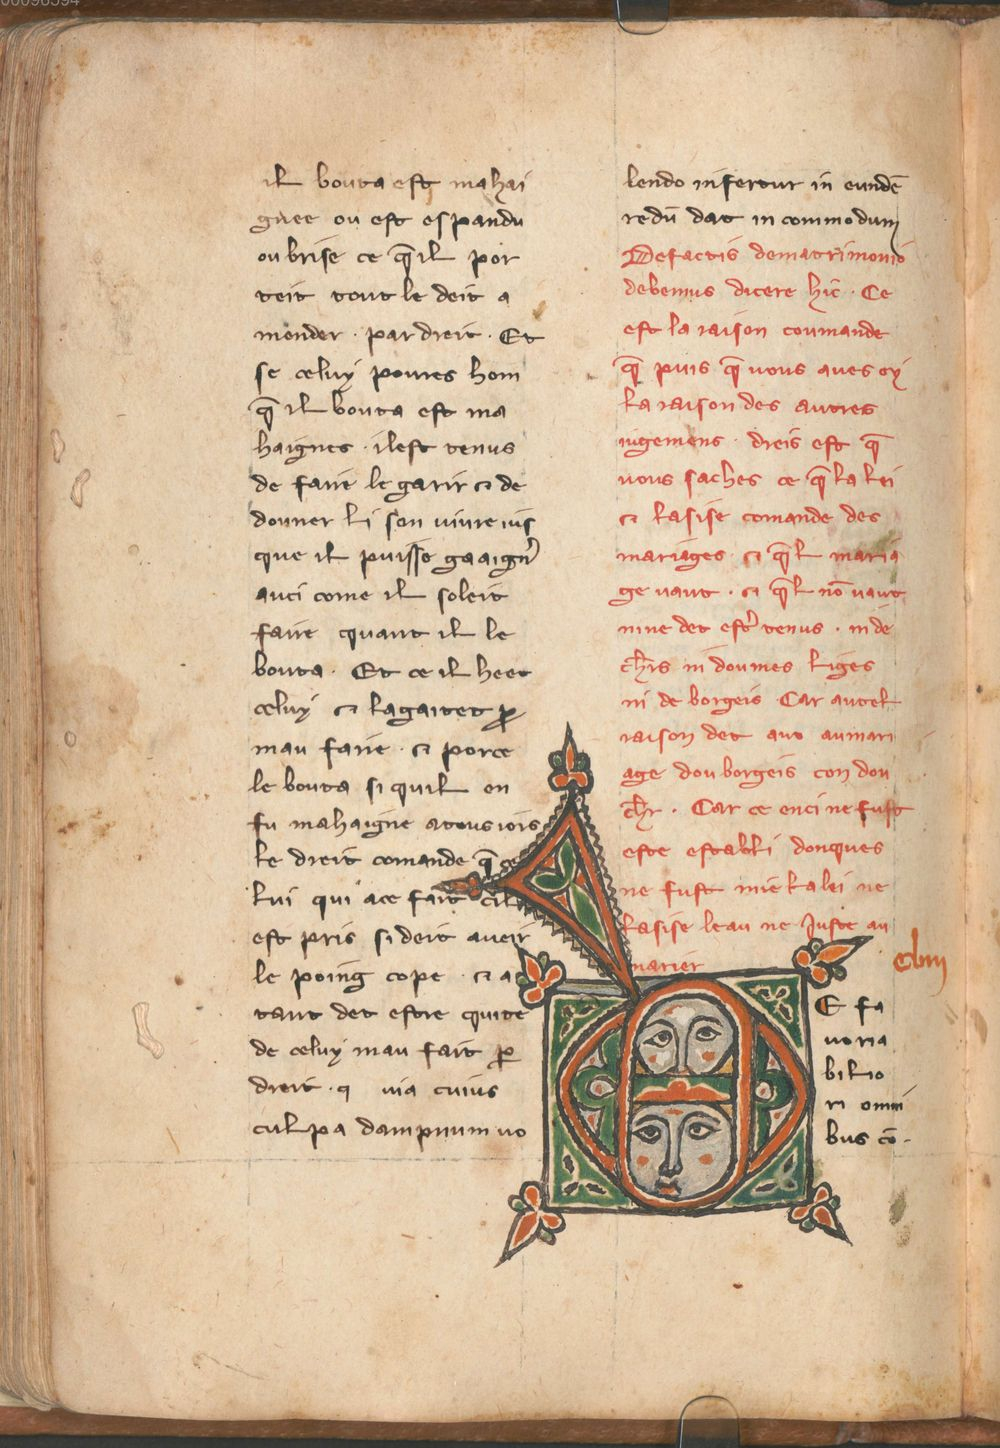 il bouta est mahai
gnee ou est espandu
ou brise ce q̄ il por
teit tout le deit a
mender · par dreit · Et
se celuy poures hom
q̄ il bouta est ma
haignes · il est tenus
de faire le garir ⁊ de
douner li son uiure ius
que il puisse gaaign̓
auci come il soleit
faire quant il le
bouta · Et ce il heet
celuy ⁊ lagaitet ꝑ
mau faire · ⁊ por ce
le bouta si quil en
fu mahaigne a tous iors
le dreit comande q̄ ce
lui qui a ce fait cil
est pris si deit aueir
le poing cope · ⁊ a
tant det estre quite
de celuy mau fait ꝑ
dreit · q uia cuius
culpa dampnum uo
lendo infertur in eundē
redū dat in commodum
De factis de matrimonio
debemus dicere hic · Ce
est la raison coumande
q̄ puis q̄ uous aues oy
la raison des autres
iugemens · dreis est q̄
uous saches ce q̄ la lei
⁊ lasise comande des
mariages ⁊ q̄l maria
ge uaut · ⁊ q̄l nō uaut
ni ne det est̓ tenus · ni de
ch̄rs ni doumes liges
ni de borgeis · Car autel
raison det aus au mari
age dou borgeis con dou
ch̄r · Car ce enci ne fust
este establi donques
ne fust mie la lei ne
lasise leau ne Juste au
marier
clui
E fa
uoria
bilio
ri omni
bus cō-